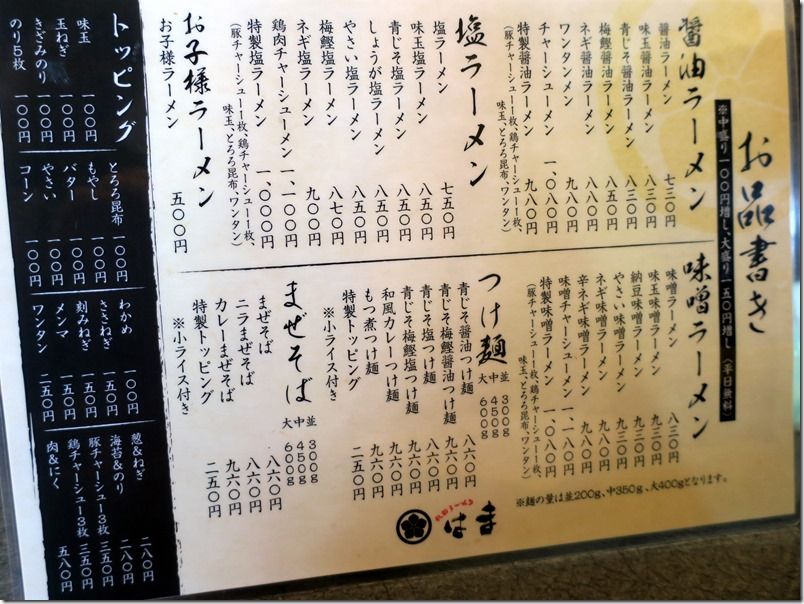 お品書き
※中盛り一〇〇円増し、大盛り一五〇円増し(平日無料)
醤油ラーメン
醤油ラーメン 七三〇円
味玉醤油ラーメン 八三〇円
青じそ醤油ラーメン 八三〇円
梅鰹醤油ラーメン 八五〇円
ネギ醤油ラーメン 八八〇円
ワンタンメン 九八〇円
チャーシューメン 一、〇八〇円
特製醤油ラーメン 九八〇円
(豚チャーシュー1枚、鶏チャーシュー1枚、
味玉、とろろ昆布、ワンタン)
塩ラーメン
塩ラーメン 七五〇円
味玉塩ラーメン 八五〇円
青じそ塩ラーメン 八五〇円
しょうが塩ラーメン 八五〇円
やさい塩ラーメン 八五〇円
梅鰹塩ラーメン 八七〇円
ネギ塩ラーメン 九〇〇円
鶏肉チャーシューメン 一、一〇〇円
特製塩ラーメン 一、〇〇〇円
(豚チャーシュー1枚、鶏チャーシュー1枚、
味玉、とろろ昆布、ワンタン)
お子様ラーメン
お子様ラーメン 五〇〇円
味噌ラーメン
味噌ラーメン 八三〇円
味玉味噌ラーメン 九三〇円
納豆味噌ラーメン 九三〇円
やさい味噌ラーメン 九三〇円
ネギ味噌ラーメン 九八〇円
辛ネギ味噌ラーメン 九八〇円
味噌チャーシューメン 一、一八〇円
特製味噌ラーメン 一、〇八〇円
(豚チャーシュー1枚、鶏チャーシュー1枚、
味玉、とろろ昆布、ワンタン)
※麺の量は並200g、中350g、大400gとなります。
つけ麺
並 300g
中 450g
大 600g
青じそ醤油つけ麺 八六〇円
青じそ梅鰹醤油つけ麺 九六〇円
青じそ塩つけ麺 八六〇円
青じそ梅鰹塩つけ麺 九六〇円
和風カレーつけ麺 九六〇円
もつ煮つけ麺 九六〇円
特製トッピング 二五〇円
※小ライス付き
まぜそば
並 300g
中 450g
大 600g
まぜそば 八六〇円
ニラまぜそば 八六〇円
カレーまぜそば 九六〇円
特製トッピング 二五〇円
※小ライス付き
はま
トッピング
味玉 一〇〇円
玉ねぎ 一〇〇円
きざみのり 一〇〇円
のり5枚 一〇〇円
とろろ昆布 一〇〇円
もやし 一〇〇円
バター 一〇〇円
やさい 一〇〇円
コーン 一〇〇円
わかめ 一〇〇円
ささねぎ 一五〇円
刻みねぎ 一五〇円
メンマ 一五〇円
ワンタン 二五〇円
葱&ねぎ 二八〇円
海苔&のり 二八〇円
豚チャーシュー3枚 三五〇円
鶏チャーシュー3枚 三五〇円
肉&にく 五八〇円